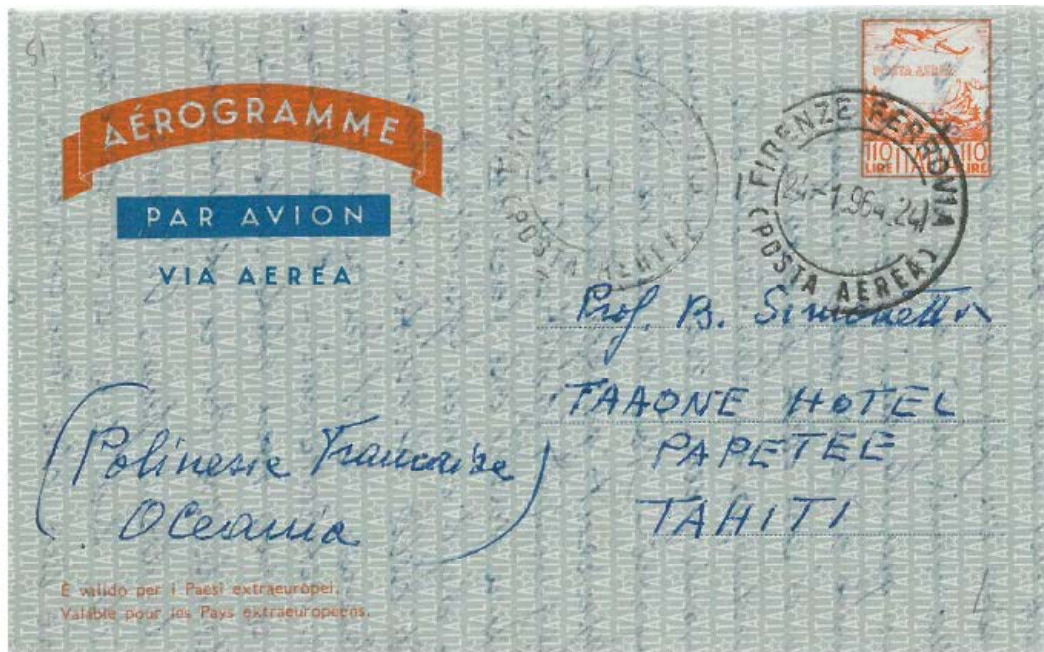 51
AÉROGRAMME
PAR AVION
VIA AEREA
POSTA AEREA
110 ITALIA 110
LIRE LIRE
FIRENZE FERROVIA
24-1.964.24
(POSTA AEREA)
(POSTA AEREA)
Prof. B. Simonetta
TAAONE HOTEL
PAPETEE
TAHITI
(Polinesie Francaise
Oceania)
È valido per i Paesi extraeuropei.
Valable pour les Pays extraeuropéens.